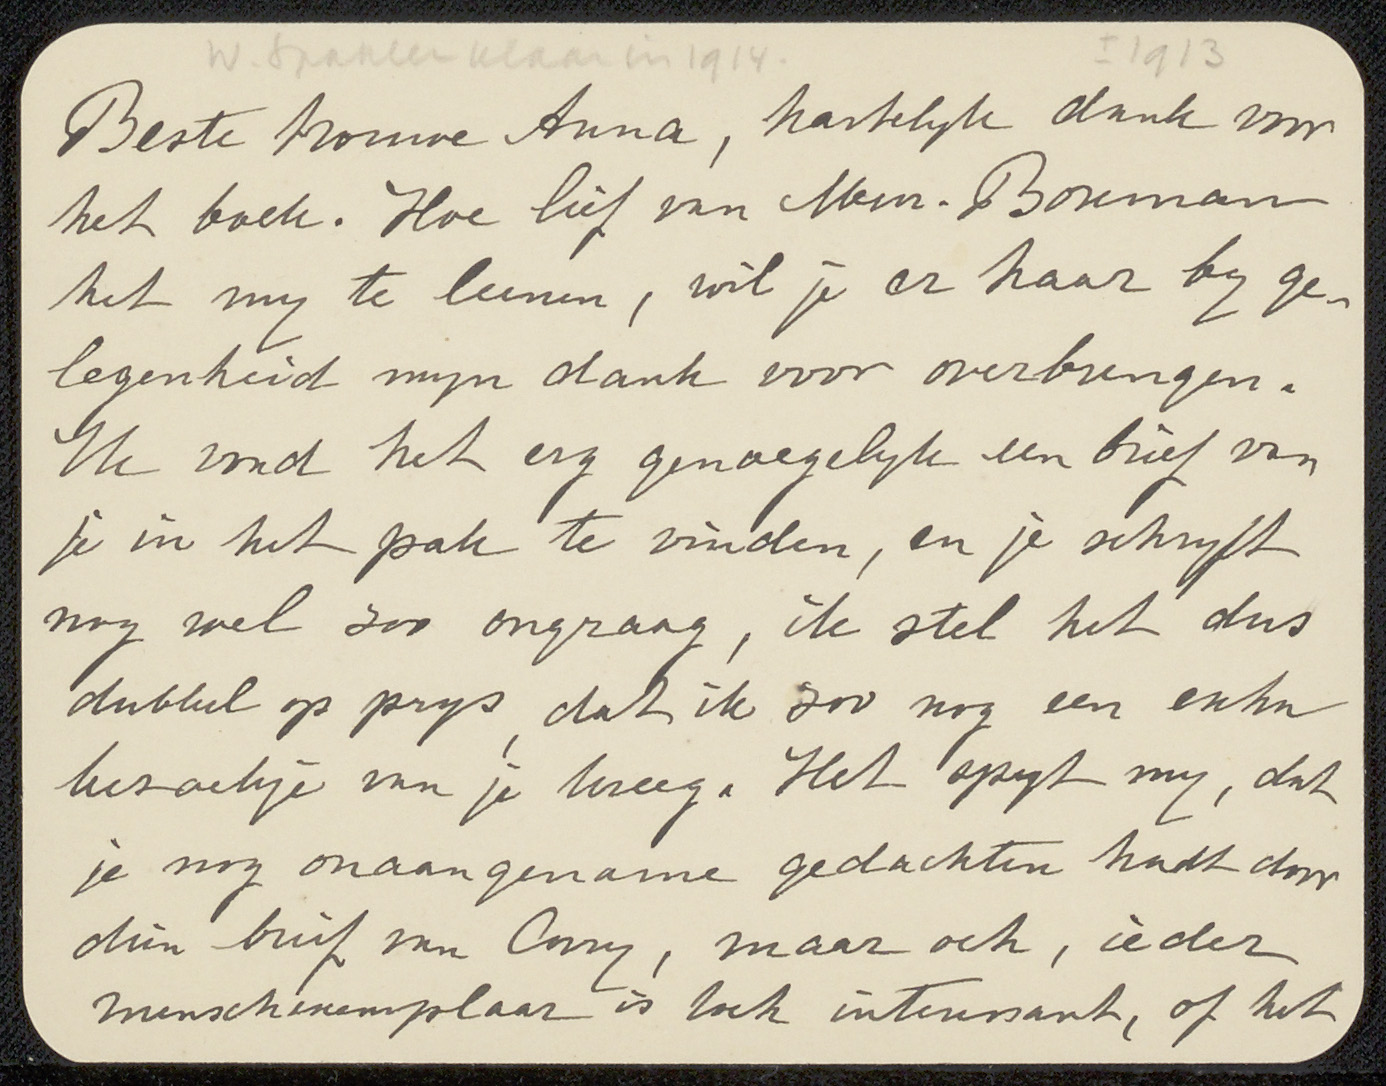 W. Spakler klaar in 1914. I 1913
Beste trouwe Anna, hartelyk dank voor
het boek. Hoe lief van Mevr. Boreman
het my te leenen, wil je er haar by ge-
legenheid myn dank voor overbrengen.
Ik vond het erg genoegelyk een brief van
je in het pak te vinden, en je schryft
nog wel zoo ongraag, ik stel het dus
dubbel op prys, dat ik zoo nog een extra
bezoekje van je kreeg. Het spyt my, dat
je nog onaangename gedachten hadt door
dien brief van Corry, maar och, ieder
menschexemplaar is toch interessant, of het